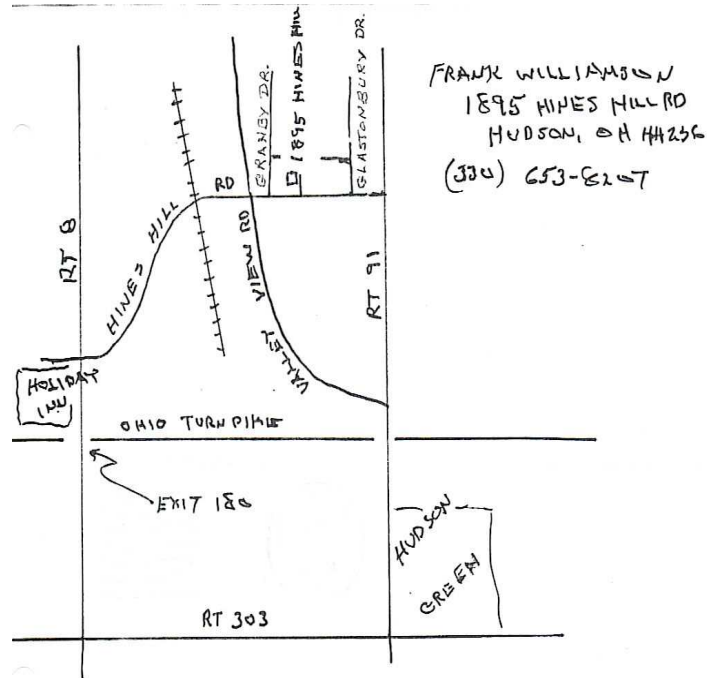 FRANK WILLIAMSON
1895 HINES HILL RD
HUDSON, OH 44236
(330) 653-8207
GRANBY DR.
1895 HINES HILL
GLASTONBURY DR.
RD
HINES HILL
RT 8
VALLEY VIEW RD
RT 91
HOLIDAY
INN
OHIO TURNPIKE
EXIT 180
HUDSON
GREEN
RT 303